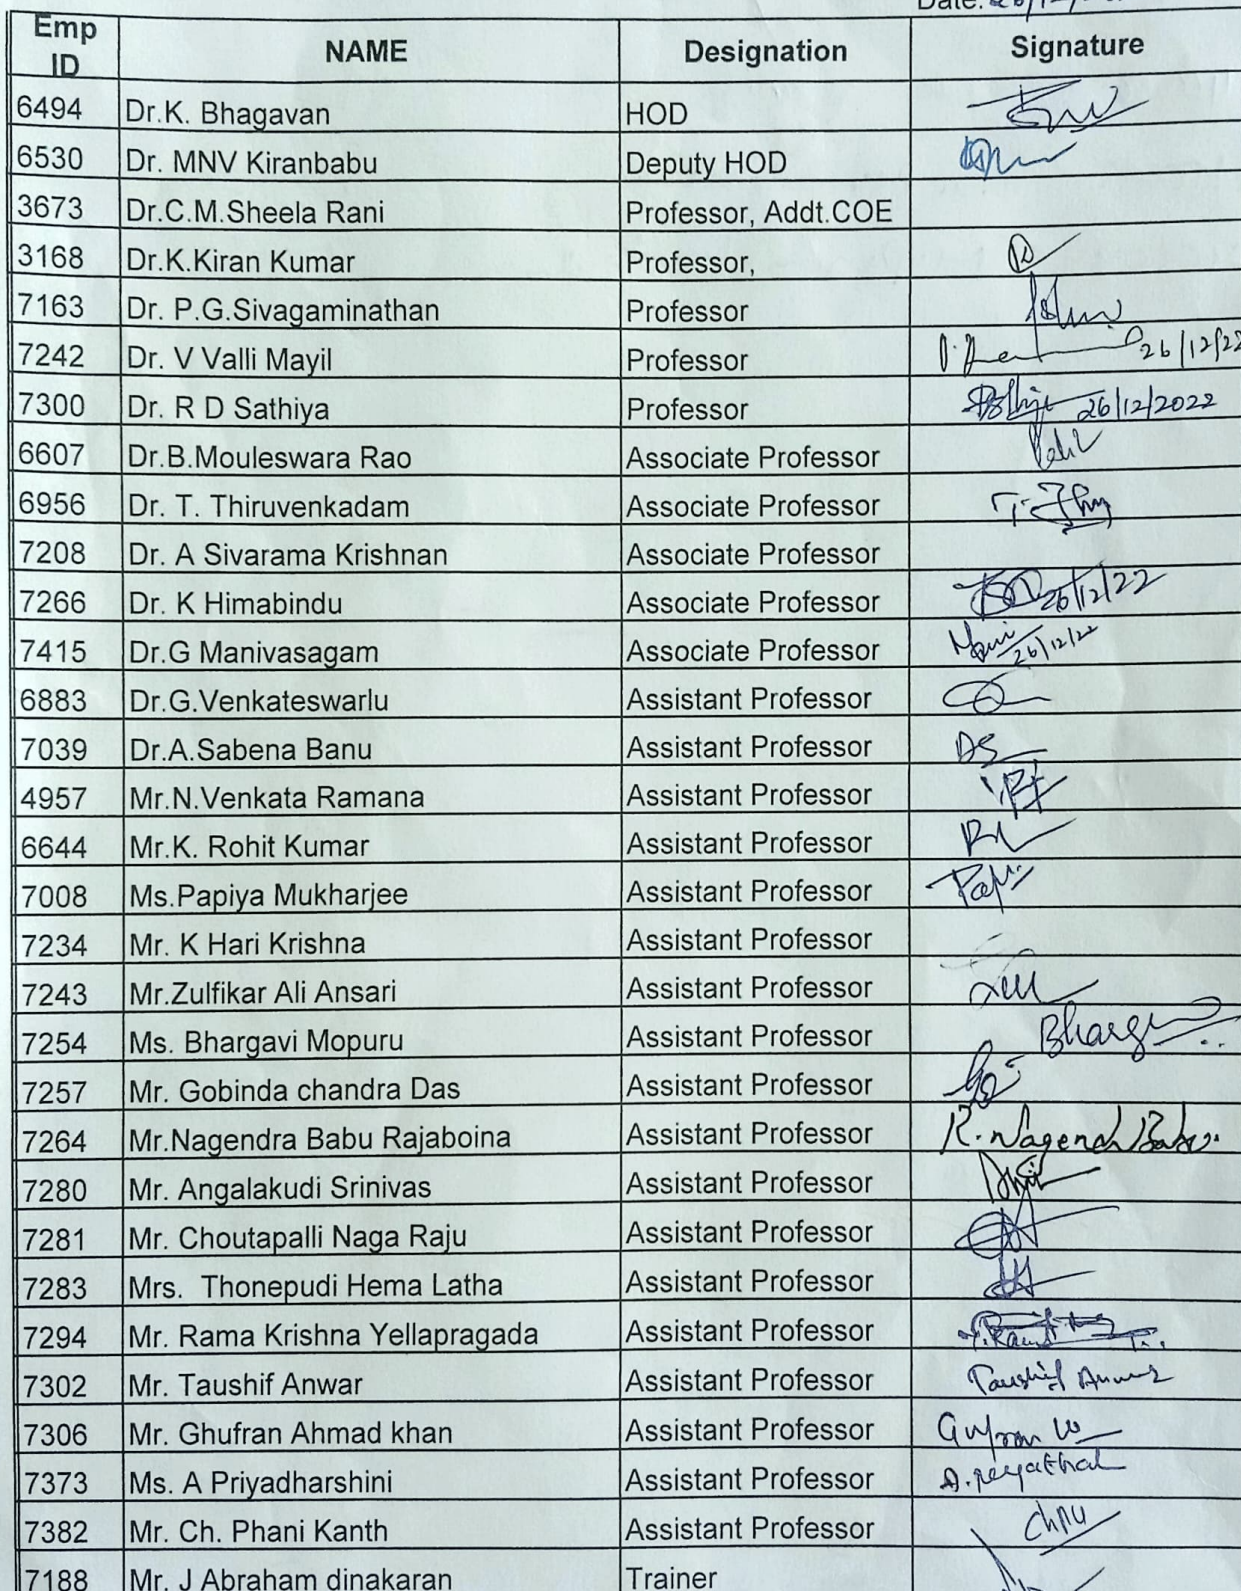 Date: 26/12/
Emp ID NAME Designation Signature
6494 Dr.K. Bhagavan HOD
6530 Dr. MNV Kiranbabu Deputy HOD
3673 Dr.C.M.Sheela Rani Professor, Addt.COE
3168 Dr.K.Kiran Kumar Professor,
7163 Dr. P.G.Sivagaminathan Professor
7242 Dr. V Valli Mayil Professor 26/12/22
7300 Dr. R D Sathiya Professor 26/12/2022
6607 Dr.B.Mouleswara Rao Associate Professor
6956 Dr. T. Thiruvenkadam Associate Professor
7208 Dr. A Sivarama Krishnan Associate Professor
7266 Dr. K Himabindu Associate Professor 26/12/22
7415 Dr.G Manivasagam Associate Professor Mani 26/12/22
6883 Dr.G.Venkateswarlu Assistant Professor
7039 Dr.A.Sabena Banu Assistant Professor
4957 Mr.N.Venkata Ramana Assistant Professor
6644 Mr.K. Rohit Kumar Assistant Professor
7008 Ms.Papiya Mukharjee Assistant Professor
7234 Mr. K Hari Krishna Assistant Professor
7243 Mr.Zulfikar Ali Ansari Assistant Professor
7254 Ms. Bhargavi Mopuru Assistant Professor
7257 Mr. Gobinda chandra Das Assistant Professor
7264 Mr.Nagendra Babu Rajaboina Assistant Professor R. Nagendra Babu.
7280 Mr. Angalakudi Srinivas Assistant Professor
7281 Mr. Choutapalli Naga Raju Assistant Professor
7283 Mrs. Thonepudi Hema Latha Assistant Professor
7294 Mr. Rama Krishna Yellapragada Assistant Professor
7302 Mr. Taushif Anwar Assistant Professor Taushif Anwar
7306 Mr. Ghufran Ahmad khan Assistant Professor
7373 Ms. A Priyadharshini Assistant Professor
7382 Mr. Ch. Phani Kanth Assistant Professor
7188 Mr. J Abraham dinakaran Trainer